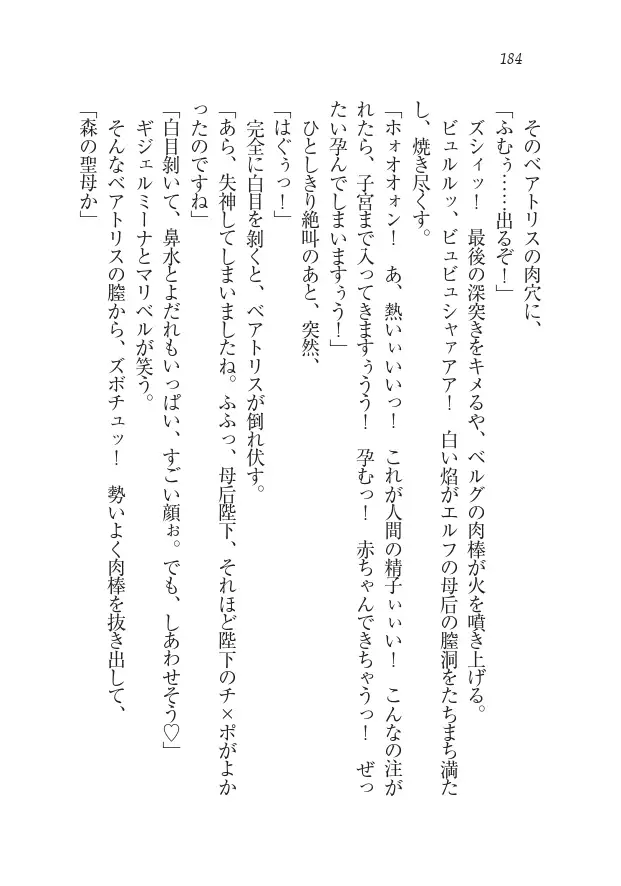 184
そのベアトリスの肉穴に、
「ふむぅ……出るぞ！」
ズシィッ！　最後の深突きをキメるや、ベルグの肉棒が火を噴き上げる。
ビュルルッ、ビュビュシャァアア！　白い焰がエルフの母后の膣洞をたちまち満た
し、焼き尽くす。
「ホォオオォン！　あ、熱いぃいいっ！　これが人間の精子ぃぃい！　こんなの注が
れたら、子宮まで入ってきますぅうう！　孕むっ！　赤ちゃんできちゃうっ！　ぜっ
たい孕んでしまいますぅう！」
ひとしきり絶叫のあと、突然、
「はぐぅっ！」
完全に白目を剥くと、ベアトリスが倒れ伏す。
「あら、失神してしまいましたね。ふふっ、母后陛下、それほど陛下のチ×ポがよか
ったのですね」
「白目剥いて、鼻水とよだれもいっぱい、すごい顔ぉ。でも、しあわせそう♡」
ギジェルミーナとマリベルが笑う。
そんなベアトリスの膣から、ズボチュッ！　勢いよく肉棒を抜き出して、
「森の聖母か」